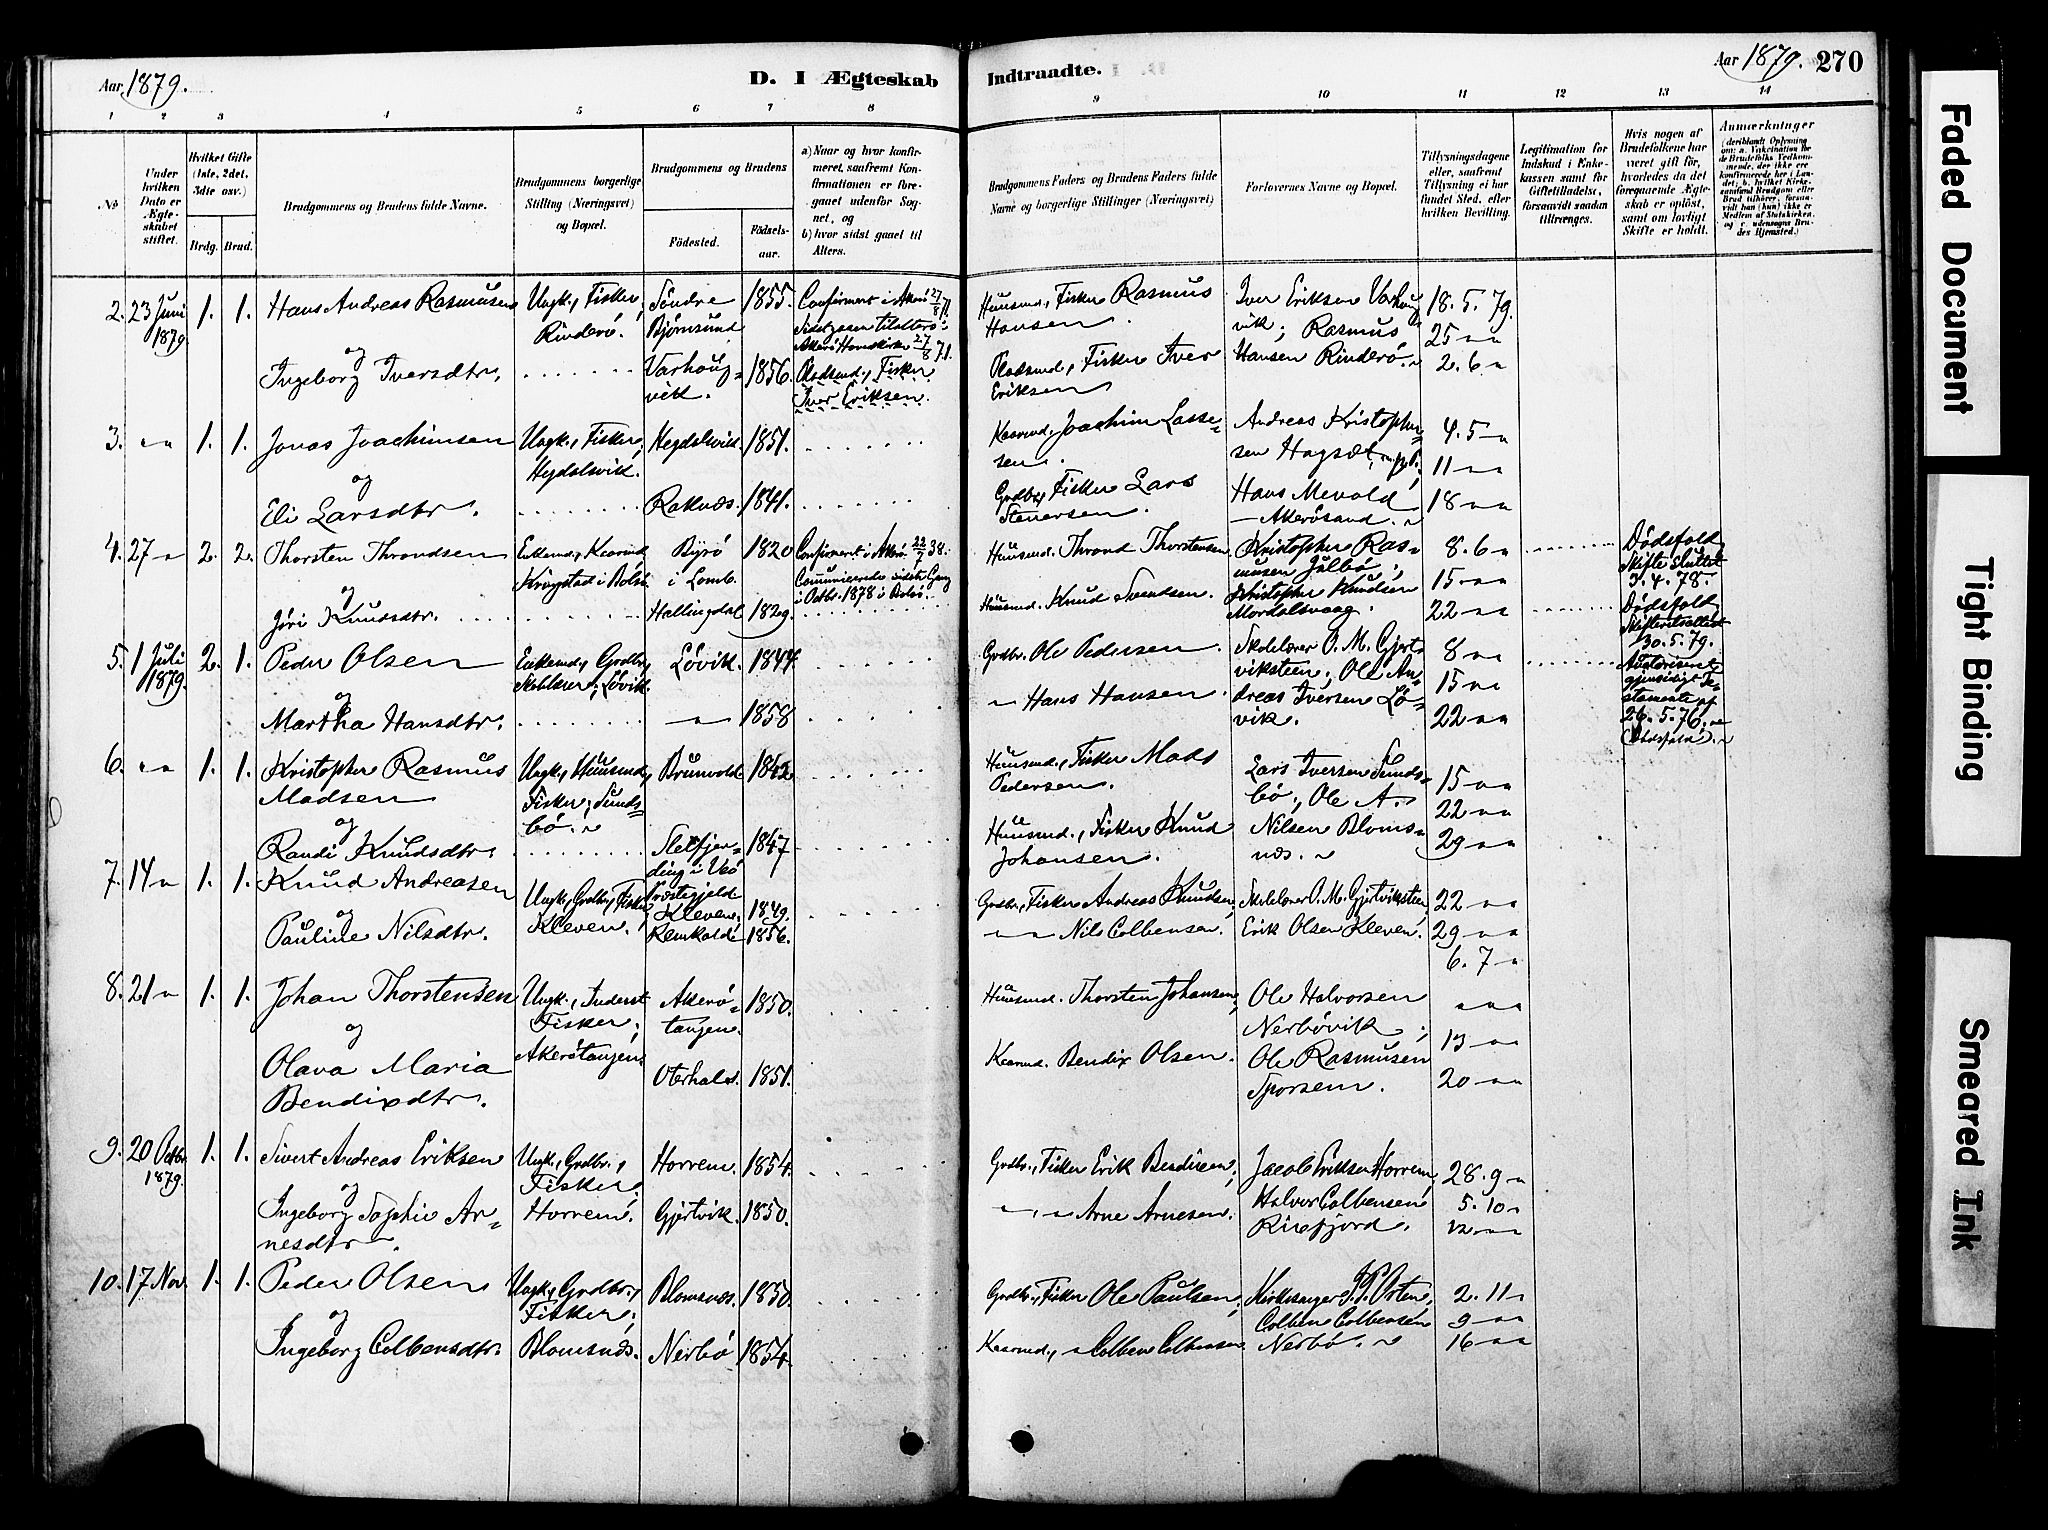 Aar 1879.
D. I Ægteskab Indtraadte.
Aar 1879. 270
1 2 3 4 5 6 7 8 9 10 11 12 13 14
No
Under hvilken Dato er Ægteskabet stiftet.
Hvilket Gifte (1ste, 2det, 3dte osv.)
Brdg. Brud.
Brudgommens og Brudens fulde Navne.
Brudgommens borgerlige Stilling (Næringsvei) og Bopæl.
Brudgommens og Brudens
Fødested.
Fødselsaar.
a) Naar og hvor konfirmeret, saafremt Konfirmationen er foregaaet udenfor Sognet, og
b) hvor sidst gaaet til Alters.
Brudgommens Faders og Brudens Faders fulde Navne og borgerlige Stillinger (Næringsvei)
Forlovernes Navne og Bopæl.
Tillysningsdagene eller, saafremt Tillysning ei har fundet Sted, efter hvilken Bevilling.
Legitimation for Indskud i Enkekassen samt for Giftetilladelse, forsaavidt saadan tiltrænges.
Hvis nogen af Brudefolkene har været gift før, hvorledes da det foregaaende Ægteskab er opløst, samt om lovligt Skifte er holdt.
Anmærkninger
2. 23 Juni 1879 1. 1. Hans Andreas Rasmussen Ungk., Fisker, Rinderö. Söndre Bjørnsund 1855. Confirmert i Akerö 27/8 71.
Huusmd., Fisker Rasmus Hansen. Iver Eriksen Varhougvik; Rasmus Hansen Rinderö. 18.5.79.
25 " "
2.6 "
og
Ingeborg Iversdtr. Varhougvik. 1856. Pladsmd., Fisker Iver Eriksen.
Pladsmd., Fisker Iver Eriksen
3. " " 1. 1. Jonas Joachimsen Ungk., Fisker, Hegdalsvik. Hegdalsvik 1851.
Joachim Lassesen. Andreas Kristophersen Hagset 4.5 "
11 " "
og
Eli Larsdtr. Raknæs. 1841.
Grdbr., Fisker Lars Steversen. Hans Mevold Akerösund. 18 " "
4. 27 " 2. 2. Thorsten Throndsen Enkemd., Kaarmd. Krøgstad i Bolsö Byrö i Lomb. 1820 Confirmeret i Akerö 22/7 38. Communicerede sidste Gang i Octbr. 1878 i Bolsö.
Huusmd. Thrond Thorstensen Kristopher Rasmusen Julbö; Kristopher Knudsen Mordalsvaag. 8.6 "
15 " "
22 " "
Dødsfald, Skifte sluttet 3.4.78.
og
Jøri Knudsdtr. Hellingdal 1829.
Huusmd. Knud Svendsen.
Dødsfald, 30.5.79.
5. 1 Juli 1879. 2. 1. Peder Olsen Enkemd., Grdbr., Skolelærer; Løvik. Løvik. 1844.
Grdbr. Ole Pedersen. Skolelærer O. M. Gjertviksteen; Ole Andreas Iversen Løvik. 8 " "
15 " "
22 " "
gjensidigt Testamente af 26.5.76.
og
Martha Hansdtr. " 1858
" Hans Hansen.
6. " " 1. 1. Kristopher Rasmus Madsen Ungk., Huusmd., Fisker; Sundsbö. Brunvold 1842
Huusmd., Fisker Mads Pedersen. Lars Iversen Sundsbö; Ole A. Nilsen Blomsnæs. 15 " "
22 " "
29 " "
og
Randi Knudsdtr. Sletfjerding i Veö Præstegjeld 1847
Huusmd., Fisker Knud Johansen.
7. 14 " 1. 1. Knud Andreasen Ungk., Grdbr., Fisker Kleven. Kleven. 1849.
Grdbr., Fisker Andreas Knudsen. Skolelærer O. M. Gjertviksteen Erik Olsen Kleven. 22 " "
29 " "
6.7 "
og
Pauline Nilsdtr. 1856.
" " Nils Colbensen.
8. 21 " 1. 1. Johan Thorstensen Ungk., Inderst Fisker; Akerötangen. Akerötangen. 1850.
Huusmd. Thorsten Johansen. Ole Halvorsen Nerbövik; Ole Rasmusen Sporsem. " " "
13 " "
20 " "
og
Olava Maria Bendixdtr. Oterhals. 1851.
Kaarmd. Bendix Olsen.
9. 20 Octbr. 1879. 1. 1. Sivert Andreas Eriksen Ungk., Grdbr., Fisker; Horrem. Horrem. 1854.
Grdbr., Fisker Erik Bendixen; Jacob Eriksen Horrem, Halvor Colbensen Rixfjord. 28.9 "
5.10 "
12 " "
og
Ingeborg Sophie Arnesdtr. Gjertvik. 1850.
" " Arne Arnesen.
10. 17 Nov. 1. 1. Peder Olsen Ungk., Grdbr., Fisker; Blomsnæs. Blomsnæs. 1850.
Grdbr., Fisker Ole Paulsen. Kirkesanger P. P. Osten, Colben Colbensen Nerbö. 2.11 "
9 " "
16 " "
og
Ingeborg Colbensdtr. Nerbö 1854.
Kaarmd., " Colben Colbensen
Faded Document
Tight Binding
Smeared Ink